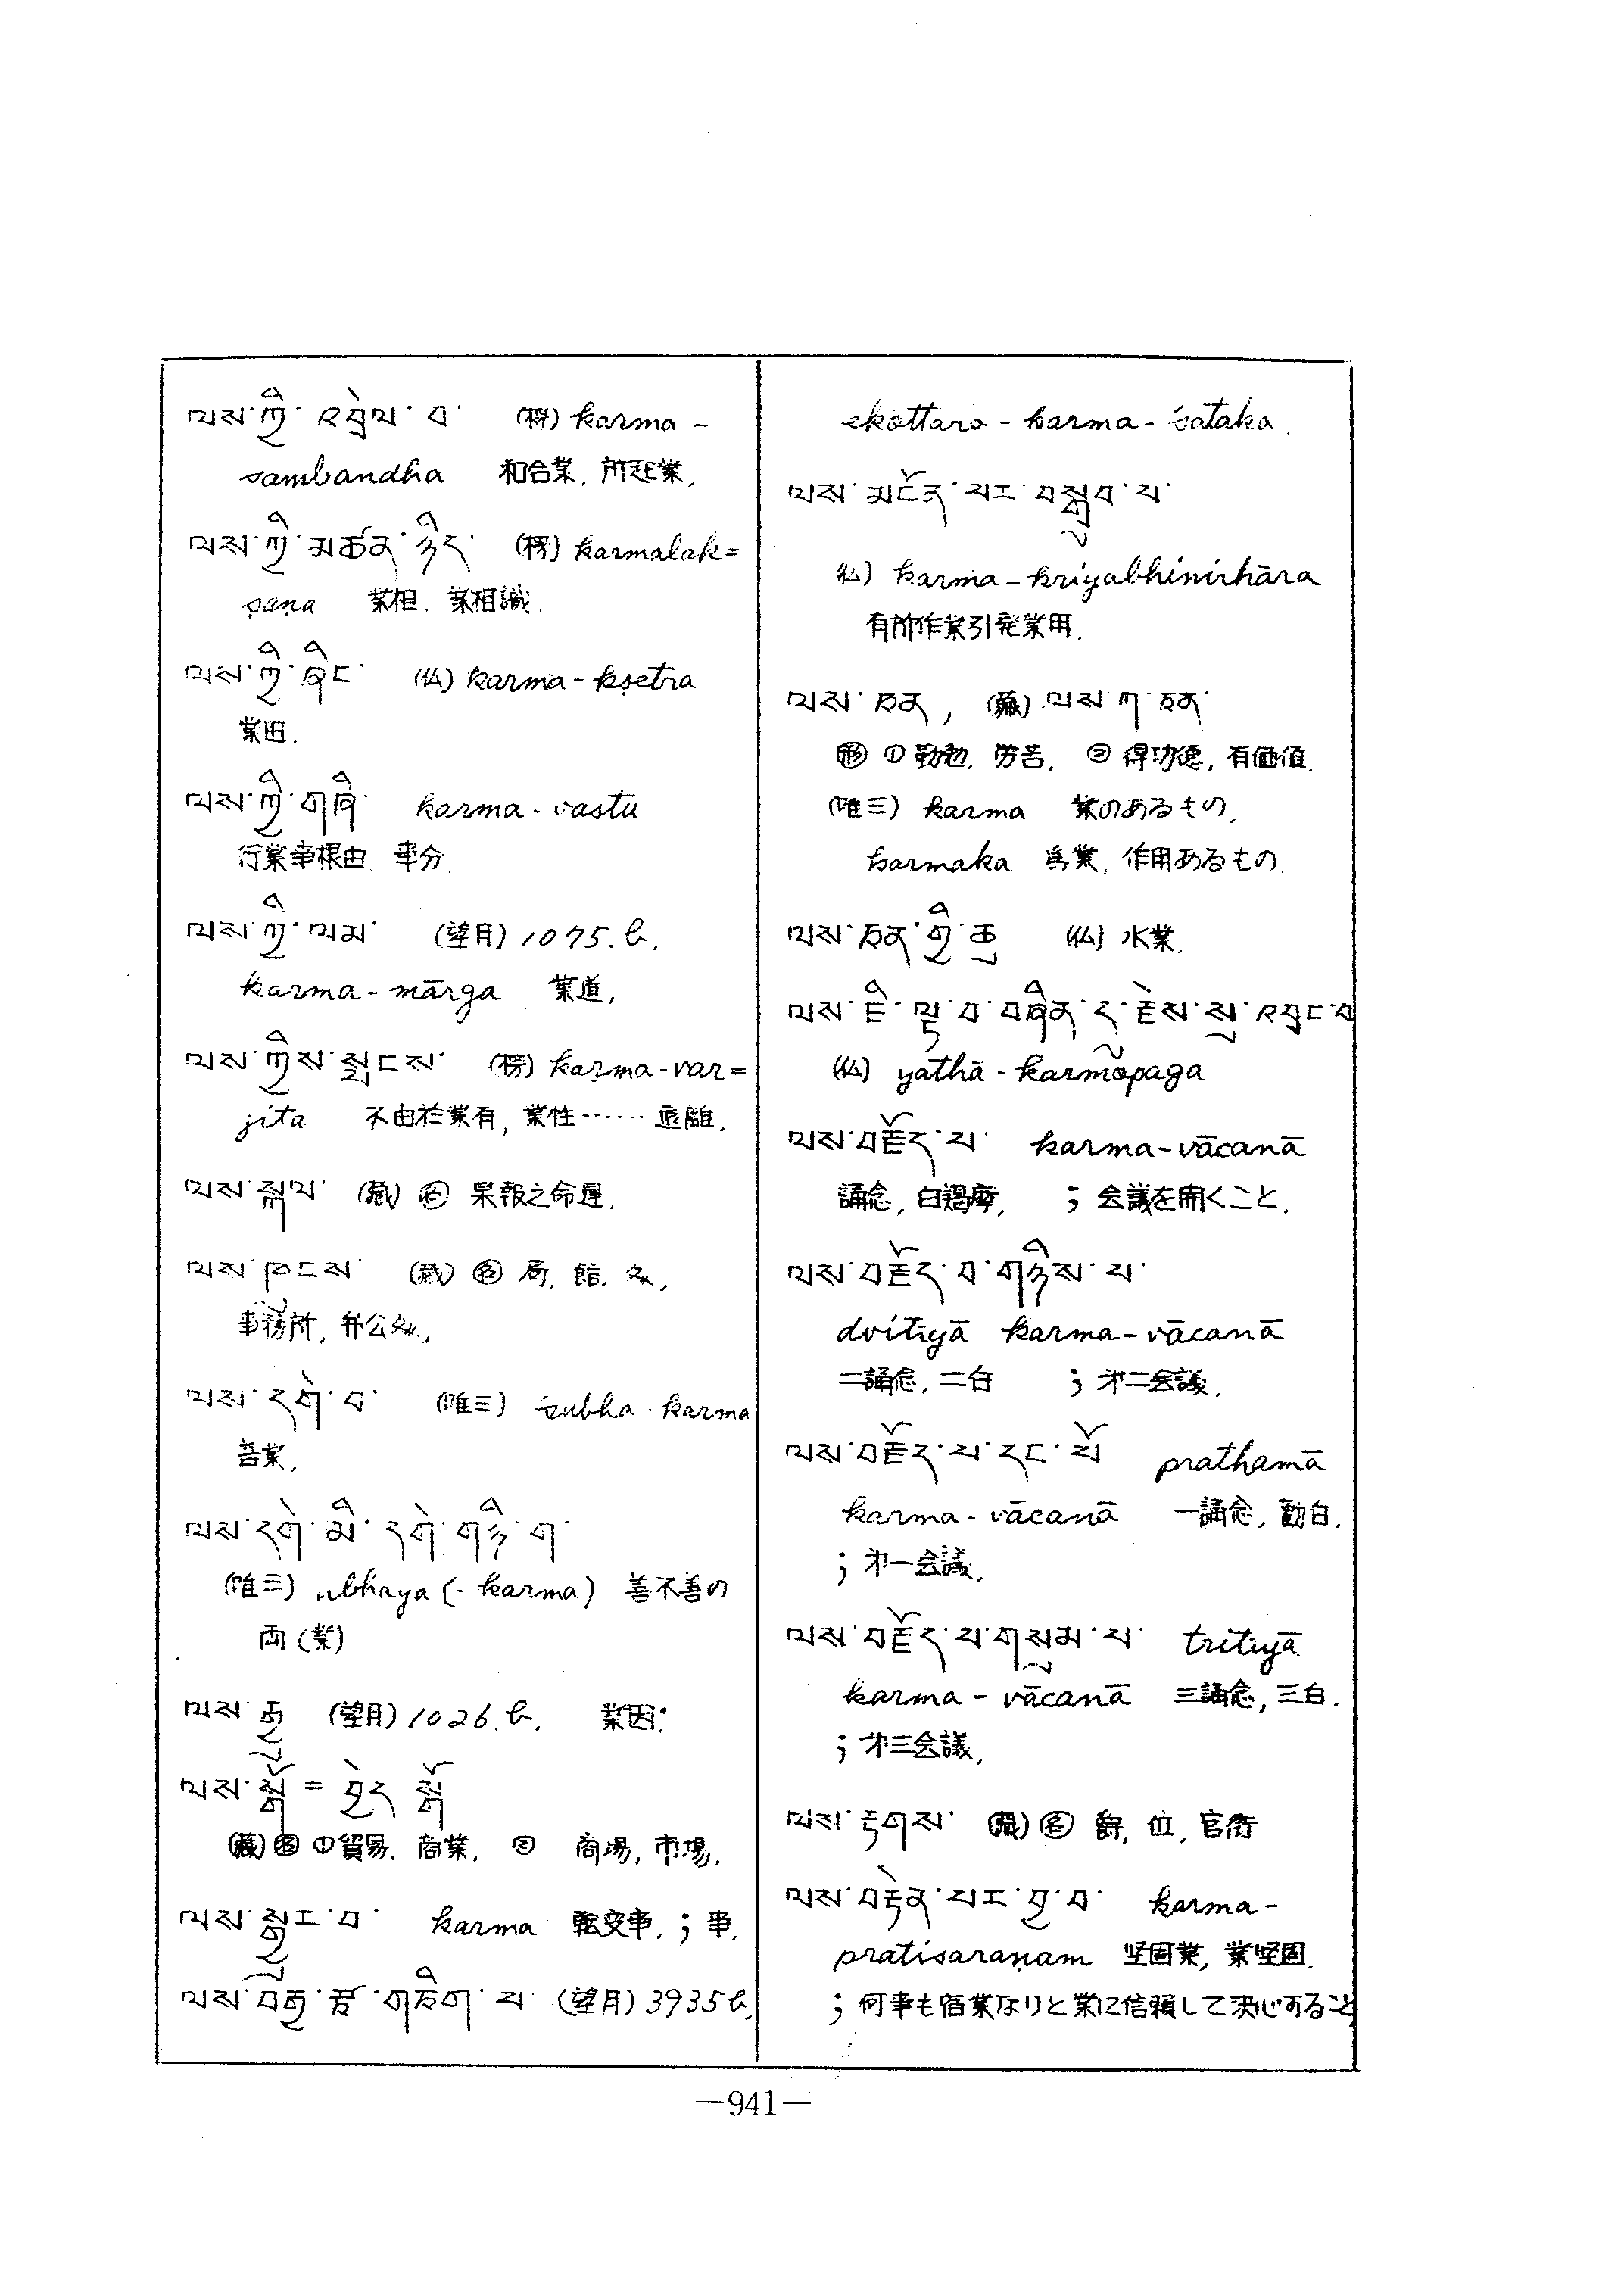 ལས་ཀྱི་འབྲེལ་བ་ (楞) karma-
sambandha 和合業, 所起業,
ལས་ཀྱི་མཚན་ཉིད་ (楞) karmalak=
ṣaṇa 業相. 業相識.
ལས་ཀྱི་ཞིང་ (仏) karma-kṣetra
業田.
ལས་ཀྱི་གཞི་ karma-vastu
行業事根由. 事分.
ལས་ཀྱི་ལམ་ (望月) 1075.b,
karma-mārga 業道,
ལས་ཀྱིས་སྤངས་ (楞) karma-var=
jita 不由於業有, 業性…… 遠離.
ལས་སྐལ་ (藏) 名 果報之命運.
ལས་ཁངས་ (藏) 名 局, 館. 処,
事務所, 弁公処,
ལས་དགེ་བ་ (唯三) śubha-karma
善業,
ལས་དགེ་མི་དགེ་གཉི་ག་
(唯三) ubhaya (-karma) 善不善の
両(業)
ལས་རྒྱུ (望月) 1026.b, 業因:
ལས་སྒོ = བྱེད་སྒོ
(藏) 名 ①貿易. 商業, ② 商場, 市場,
ལས་སྒྱུར་བ་ karma 転変事, ; 事,
ལས་བརྒྱ་རྩ་གཅིག་པ་ (望月) 3935b,
ekottara-karma-śataka.
ལས་མངོན་པར་བསྒྲུབ་པ་
(仏) karma-kriyabhinirhāra
有所作業引発業用.
ལས་ཅན, (藏) ལས་ཀ་ཅན་
形 ① 勤勉, 労苦, ② 得功徳, 有価値.
(唯三) karma 業のあるもの,
karmaka 為業, 作用あるもの.
ལས་ཅན་གྱི་ཆུ (仏) 水業.
ལས་ཇི་ལྟ་བ་བཞིན་དུ་རྗེས་སུ་འབྲང་བ
(仏) yathā-karmopaga
ལས་བརྗོད་པ་ karma-vācanā
誦念, 白羯磨, ; 会議を開くこと.
ལས་བརྗོད་པ་གཉིས་པ་
dvitīyā karma-vācanā
二誦念, 二白 ; 才二会議,
ལས་བརྗོད་པ་དང་པོ prathamā
karma-vācanā 一誦念, 勤白.
; 才一会議,
ལས་བརྗོད་པ་གསུམ་པ་ tritiyā
karma-vācanā 三誦念, 三白.
; 才三会議,
ལས་རྟགས་ (藏) 名 爵, 位, 官銜
ལས་བརྟེན་པར་བྱ་བ་ karma-
pratisaraṇam 堅固業, 業堅固.
; 何事も宿業なりと業に信頼して決心すること
—941—